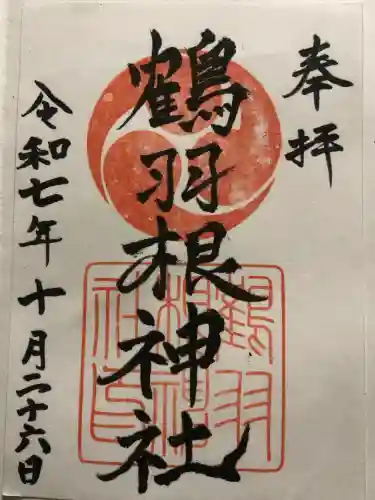 奉拝
鶴羽根神社
鶴羽根神社印
令和七年十月二十六日